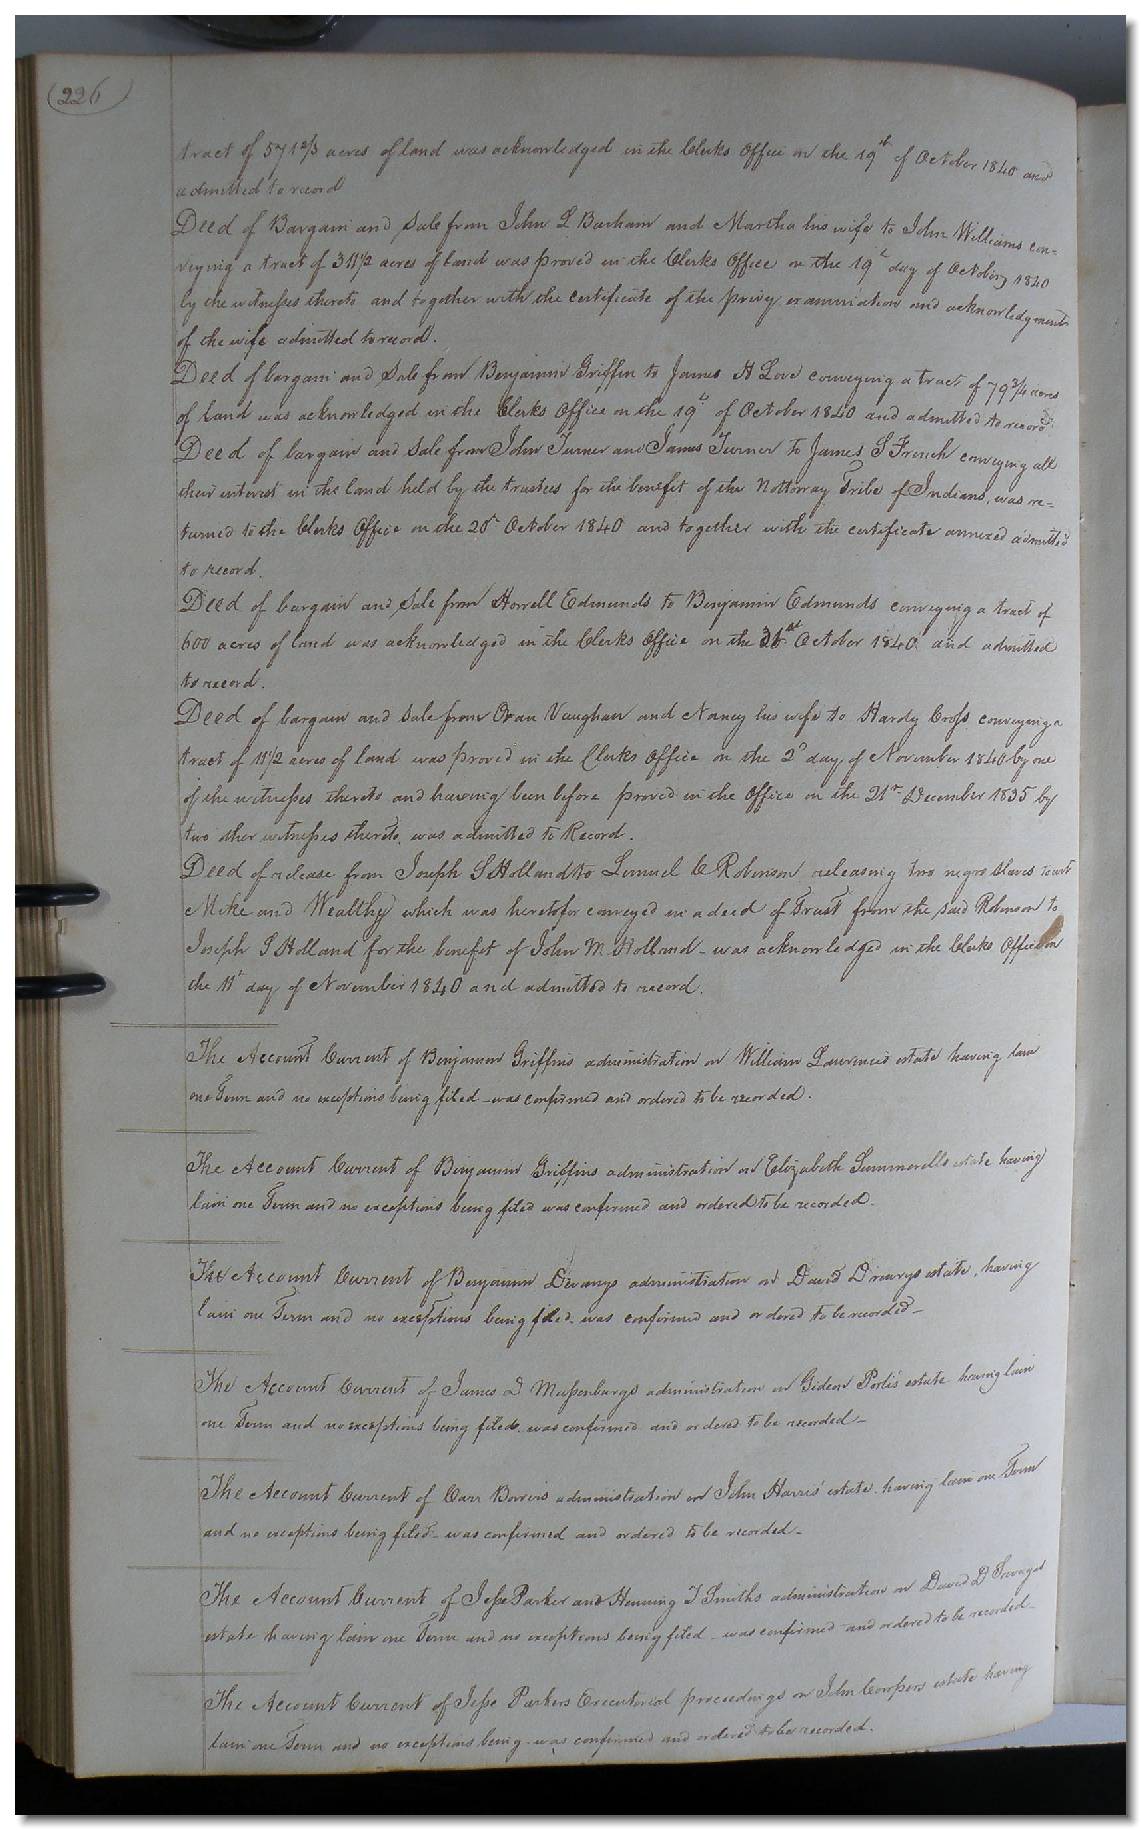 (226)
tract of 57 1 2/3 acres of land was acknowledged in the Clerks Office on the 19th of October 1840 and
admitted to record
Deed of Bargain and Sale from John L Barham and Martha his wife to John Williams con-
veying a tract of 311/2 acres of land was proved in the Clerks Office on the 19t day of October 1840
by the witnesses thereto and together with the certificate of the privy examination and acknowledgment
of the wife admitted to record.
Deed of bargain and Sale from Benjamin Griffin to James H Love conveying a tract of 79 3/4 acres
of land was acknowledged in the Clerks Office on the 19t of October 1840 and admitted to record
Deed of bargain and Sale from John Turner and James Turner to James S French conveying all
their interest in the land held by the trustees for the benefit of the Nottoway Tribe of Indians, was re-
turned to the Clerks Office on the 20t October 1840 and together with the certificate annexed admitted
to record.
Deed of bargain and Sale from Howell Edmunds to Benjamin Edmunds conveying a tract of
600 acres of land was acknowledged in the Clerks Office on the October 1840 and admitted
to record.
Deed of bargain and Sale from Oran Vaughan and Nancy his wife to Hardy Cross conveying a
tract of 111/2 acres of land was proved in the Clerks Office on the 2d day of November 1840 by one
of the witnesses thereto and having been before proved in the Office on the 21st December 1835 by
two other witnesses thereto, was admitted to Record.
Deed of release from Joseph S Holland to Lemuel C Robinson releasing two negro slaves to wit
Mike and Wealthy which was heretofor conveyed in a deed of Trust from the said Robinson to
Joseph S Holland for the benefit of John M. Holland - was acknowledged in the Clerks Office on
the 11t day of November 1840 and admitted to record.
The Account Current of Benjamin Griffins administration on William Lawrences estate having lain
one Term and no exceptions being filed - was confirmed and ordered to be recorded.
The Account Current of Benjamin Griffins administration on Elizabeth Summerells estate having
lain one Term and no exceptions being filed was confirmed and ordered to be recorded -
The Account Current of Benjamin Dewanys administration on David Drewrys estate, having
lain one Term and no exceptions being filed - was confirmed and ordered to be recorded -
The Account Current of James D Massenburgs administration on Gideon estate having lain
one Term and no exceptions being filed - was confirmed and ordered to be recorded -
The Account Current of Carr Bowers administration on John Harris' estate, having lain one Term
and no exceptions being filed - was confirmed and ordered to be recorded -
The Account Current of Jesse Parker and Henning T Smiths administration on David D
estate having lain one Term and no exceptions being filed - was confirmed and ordered to be recorded -
The Account Current of Jesse Parkers Executorial proceedings on John Coopers estate having
lain one Term and no exceptions being - was confirmed and ordered to be recorded.